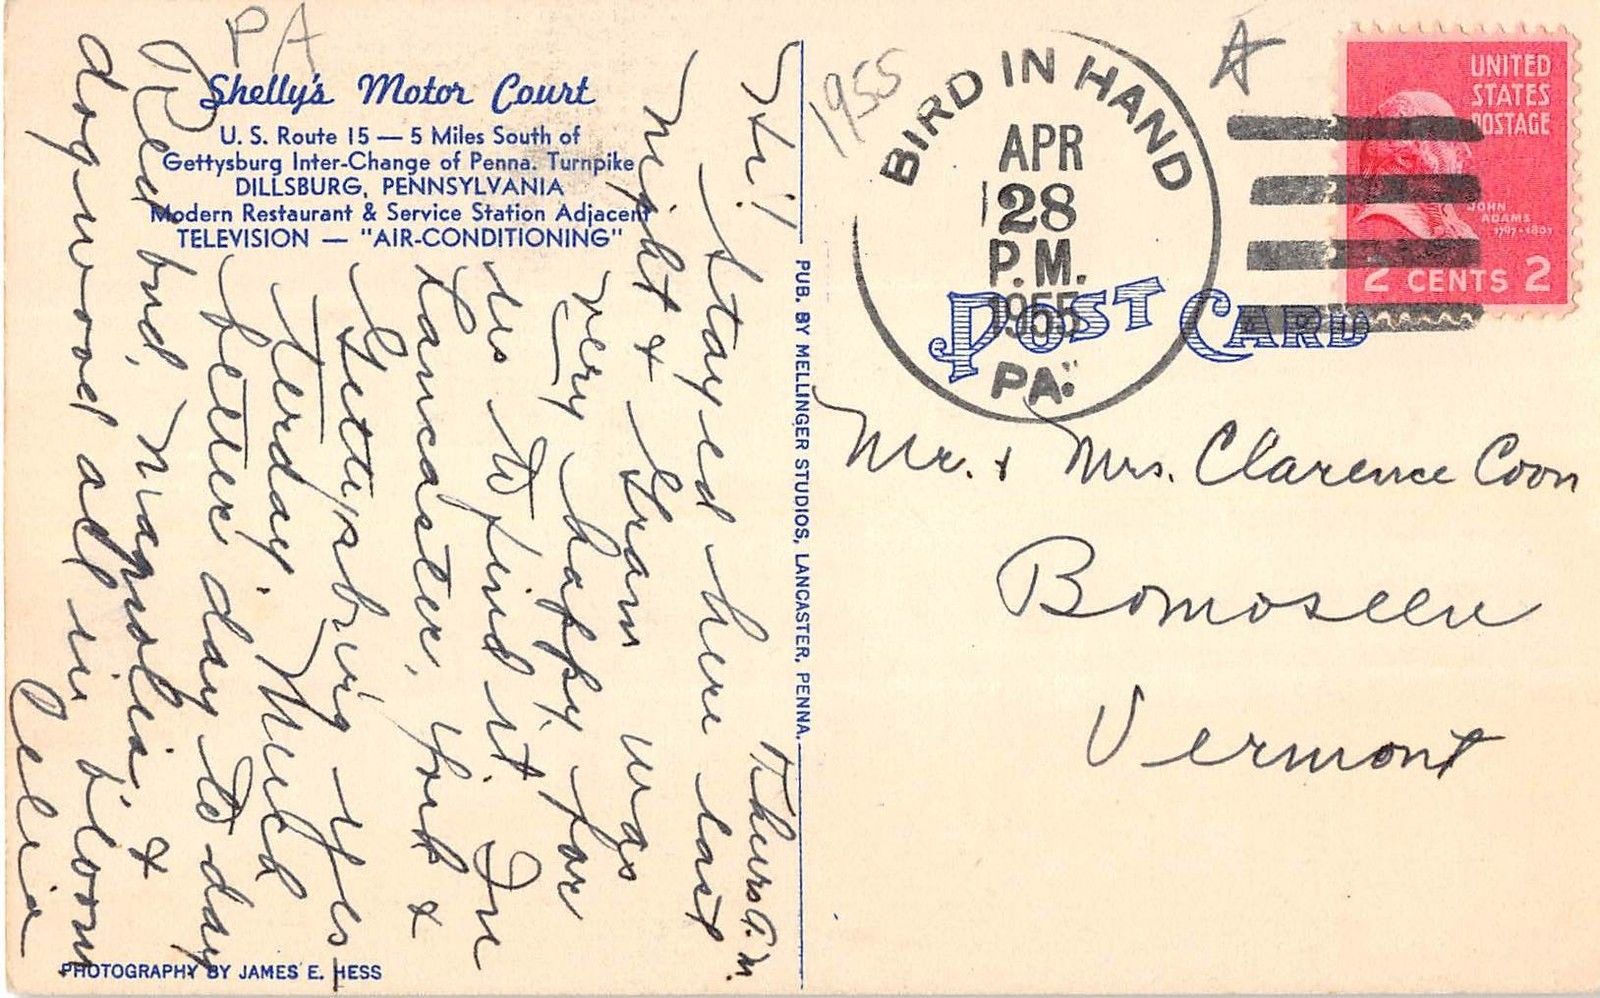 PA
Shelly's Motor Court
U. S. Route 15 — 5 Miles South of
Gettysburg Inter-Change of Penna. Turnpike
DILLSBURG, PENNSYLVANIA
Modern Restaurant & Service Station Adjacent
TELEVISION — "AIR-CONDITIONING"
Thurs A. M.
Hi!
Stayed here last
night & Gram was
very happy for
us to find it. In
Lancaster, York &
Gettysburg yes-
terday. Much
better day to day
Red bud, Magnolia, &
dogwood all in bloom
Celia
PHOTOGRAPHY BY JAMES E. HESS
PUB. BY MELLINGER STUDIOS, LANCASTER, PENNA.
1955
BIRD IN HAND
APR
28
P.M.
1955
PA.
A
UNITED
STATES
POSTAGE
JOHN
ADAMS
1797-1801
2 CENTS 2
POST CARD
Mr. & Mrs. Clarence Coon
Bomoseen
Vermont